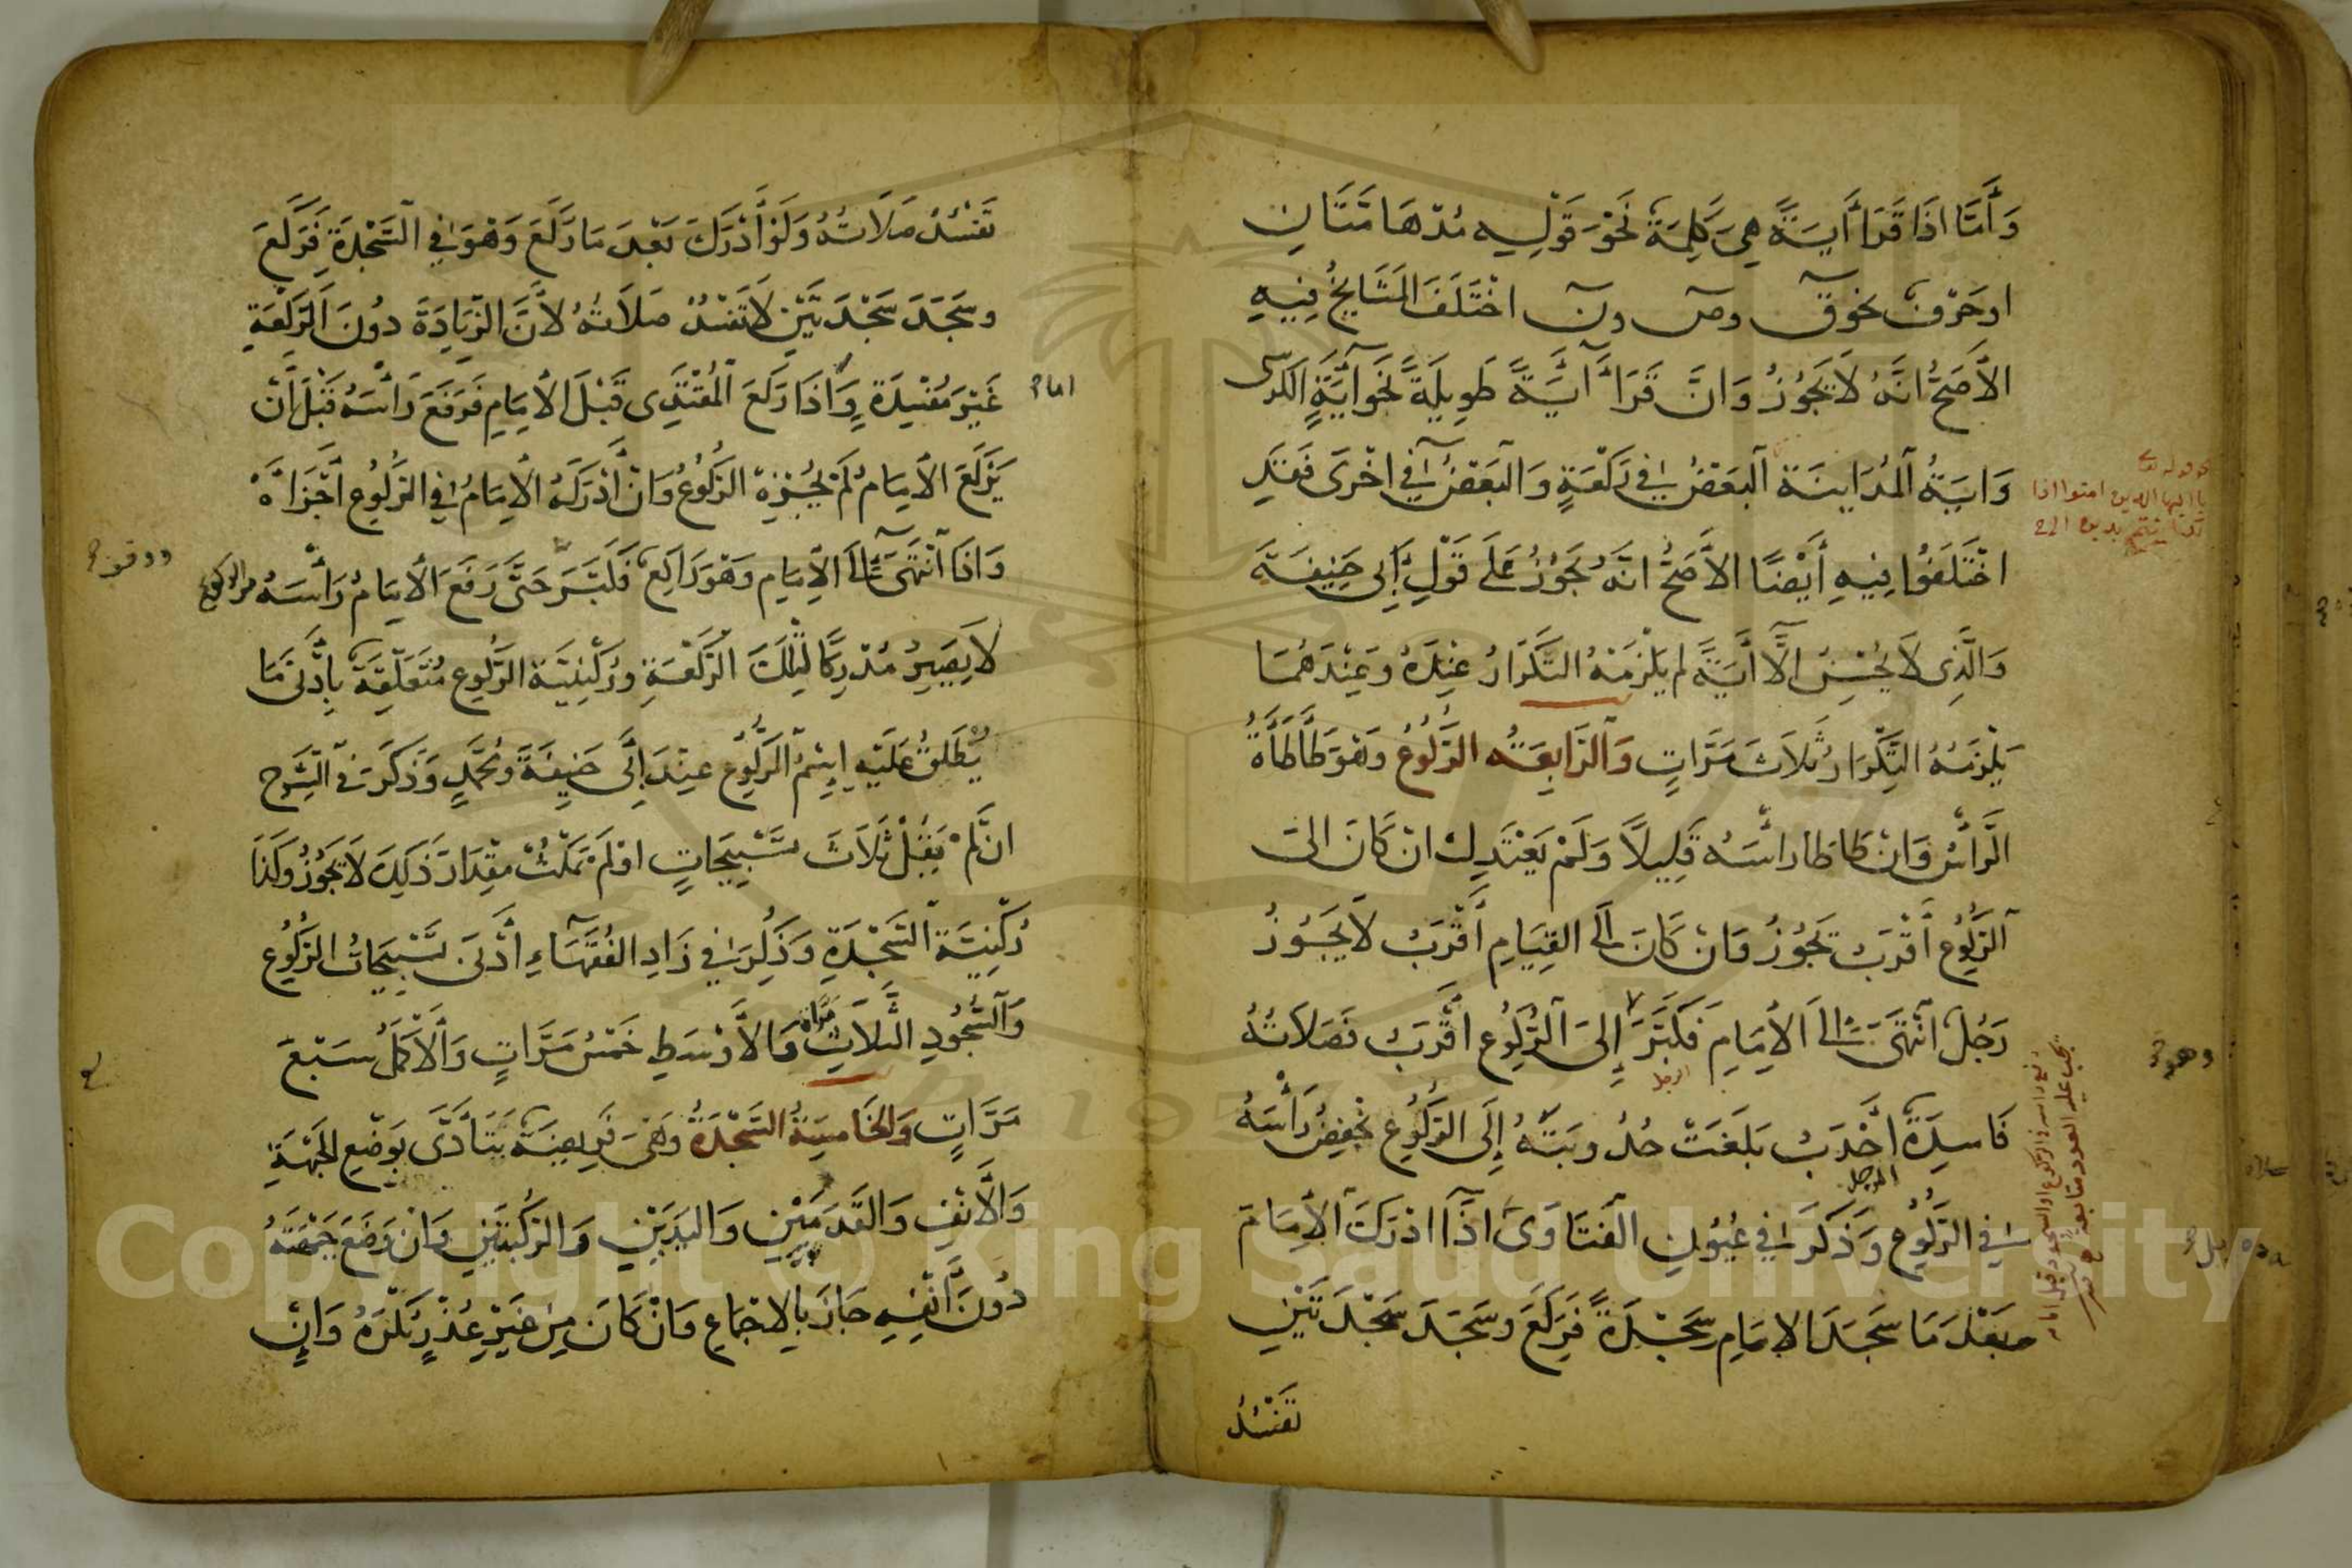 وَأَمَّا اذَا قَرَأَ أَيَةً هِىَ كَلِمَةٌ نَحْوَ قَوْلِهِ مُدْهَامَّتَانِ
اوحَرْفٌ نحوقٓ وصٓ ونٓ اخْتَلَفَ المَشَايِخُ فِيهِ
الأَصَحُّ انَّهُ لَا يَجُوزُ وَانَّ قَرَأَ آيَةً طَوِيلَةً نَحْوَ آيَةِ الكرسى
وَايَةُ المُدَايَنَةِ البَعْضُ فِي رَكْعَةٍ وَالبَعْضُ فِي اخْرَى فَقَدِ
اخْتَلَفُوا فِيهِ أَيْضًا الأَصَحُّ انَّهُ يَجُوزُ عَلَى قَوْلِ أَبِى حَنِيفَةَ
وَالَّذِى لَا يُحْسِنُ الَّا أَيَةً لم يَلْزَمْهُ التَّكْرَارُ عِنْدَهُ وَعِنْدَهُمَا
يَلْزَمُهُ التِّكْرَارُ ثَلَاثَ مَرَّاتٍ وَالرَّابِعَةُ الرُّكُوعُ وَهُوَ طَأْطَأَةُ
الرَّأْسِ وَانْ طَاطَا رَاسَهُ قَلِيلًا وَلَمْ يَعْتَدِلْ انْ كَانَ الىَ
الرُّكُوعِ أَقْرَبَ يَجُوزُ وَانْ كَانَ الَى القِيَامِ أَقْرَبَ لَا يَجُوزُ
رَجُلٌ انْتَهَى الَى الأِمَامِ فَكَبَّرَ إِلىَ الرُّكُوعِ أَقْرَبُ فَصَلَاتُهُ
الرجل
فَاسِدَةٌ احْدَبُ بَلَغَتْ حُدُوبَتُهُ إِلَى الرُّكُوعِ يَخْفِضُ رَأْسَهُ
فِي الرُّكُوعِ وَذَكَرَ فِي عُيُونِ الفَتَاوَى اذَا ادْرَكَ الأِمَامَ
الرجل
بعْدَ مَا سَجَدَ الامَامِ سَجْدَةً فَرَكَعَ وسَجَدَ سَجْدَتَيْنِ
تَفْسُدُ
ياايها الذين امنوا اذا
وهو
تَفْسُدُ صَلَاتُهُ وَلَوْ أَدْرَكَ بَعْدَ مَا رَكَعَ وَهُوَ فِي السَّجْدَةِ فَرَكَعَ
وسَجَدَ سَجْدَتَيْنِ لَا تَفْسُدُ صَلَاتُهُ لأَنَّ الزِّيَادَةَ دُونَ الرَّكْعَةِ
غَيْرَ مُفْسِدَةٍ وَاذَا رَكَعَ المُقْتَدِى قَبْلَ الأِمَامِ فَرَفَعَ رَأْسَهُ قَبْلَ أَنْ
يَرْكَعَ الأِمَامُ لَمْ يُجْزِهِ الرُّكُوعُ وَانْ أَدْرَكَهُ الأِمَامُ فِي الرُّكُوعِ أَجْزَاهُ
وَاذَا انْتَهَى الَى الأِمَامِ وَهُوَ رَاكِعٌ فَكَبَّرَ حَتَّى رَفَعَ الأِمَامُ رَأْسَهُ من الركوع
لَا يَصِيرُ مُدْرِكًا لِتِلْكَ الرَّكْعَةِ وَرُكْنِيَّةُ الرُّكُوعِ مُتَعَلِّقَةٌ بِأَدْنَى مَا
يُطْلَقُ عَلَيْهِ اسْمُ الرُّكُوعِ عِنْدَ أَبِى حَنِيفَةَ وَمُحَمَّدٍ وَذَكَرَ فِي الشَّرْحِ
انْ لَمْ يَقُلْ ثَلَاثَ تَسْبِيحَاتٍ اوْ لَمْ يَمْكُثْ مِقْدَارَ ذَلِكَ لَا يَجُوزُ وَكَذَا
رُكْنِيَّةُ السَّجْدَةِ وَذُكِرَ فِي زَادِ الفُقَهَاءِ أَدْنَى تَسْبِيحَاتُ الرُّكُوعِ
وَالسُّجُودِ الثَّلَاثُ مَرَّات وَالأَوْسَطِ خَمْسُ مَرَّاتٍ وَالأَكْمَلُ سَبْعَ
مَرَّاتٍ وَالخَامِسَةُ السَّجْدَةُ وَهِىَ فَرِيضَةٌ تَتَأَدَّى بِوَضْعِ الجَبْهَةِ
وَالأَنْفِ وَالقَدَمَيْنِ وَاليَدَيْنِ وَالرُّكْبَتَيْنِ وَانْ وَضَعَ جَبْهَتَهُ
دُونَ أَنْفِهِ جَازَ بِالاجْمَاعِ وَانْ كَانَ مِنْ غَيْرِ عُذْرٍ يُكْرَهُ وَانْ
Copyright © King Saud University